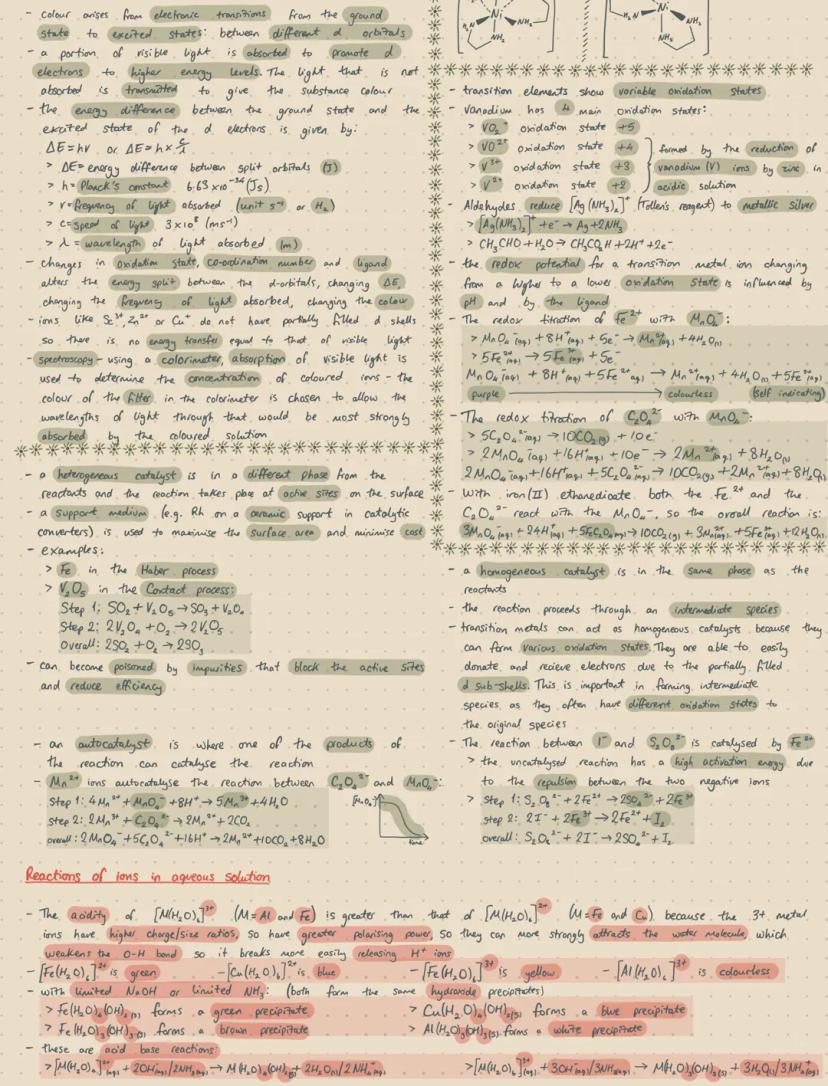 - colour arises from electronic transitions from the ground
state to excited states: between different d orbitals
- a portion of visible light is absorbed to promote d
electrons to higher energy levels. The light that is not
absorbed is transmitted to give the substance colour
- the energy difference between the ground state and the
excited state of the d electrons is given by:
ΔE=hv or ΔE=h×c/λ
> ΔE=energy difference between split orbitals (J)
> h=Planck's constant 6.63×10⁻³⁴(Js)
> v=frequency of light absorbed (unit s⁻¹ or Hz)
> c=speed of light 3×10⁸ (ms⁻¹)
> λ=wavelength of light absorbed (m)
- changes in oxidation state, co-ordination number and ligand
alters the energy split between the d-orbitals, changing ΔE,
changing the frequency of light absorbed, changing the colour
- ions like Sc³⁺, Zn²⁺ or Cu⁺ do not have partially filled d shells
so there is no energy transfer equal to that of visible light
- spectroscopy - using a colorimeter, absorption of visible light is
used to determine the concentration of coloured ions - the
colour of the filter in the colorimeter is chosen to allow the
wavelengths of light through that would be most strongly
absorbed by the coloured solution
- a heterogeneous catalyst is in a different phase from the
reactants and the reaction takes place at active sites on the surface
- a support medium (e.g. Rh on a ceramic support in catalytic
converters) is used to maximise the surface area and minimise cost
- examples:
> Fe in the Haber process
> V₂O₅ in the Contact process:
Step 1: SO₂+V₂O₅→SO₃+V₂O₄
Step 2: 2V₂O₄+O₂→2V₂O₅
Overall: 2SO₂+O₂→2SO₃
- can become poisoned by impurities that block the active sites
and reduce efficiency
- an autocatalyst is where one of the products of
the reaction can catalyse the reaction
- Mn²⁺ ions autocatalyse the reaction between C₂O₄²⁻ and MnO₄⁻:
Step 1: 4Mn²⁺+MnO₄⁻+8H⁺→5Mn³⁺+4H₂O
Step 2: 2Mn³⁺+C₂O₄²⁻→2Mn²⁺+2CO₂
overall: 2MnO₄⁻+5C₂O₄²⁻+16H⁺→2Mn²⁺+10CO₂+8H₂O
[MnO₄⁻]
time
Ni
H₂N
NH₂
Ni
H₂N
NH₂
NH₂
- transition elements show variable oxidation states
- vanadium has 4 main oxidation states:
> VO₂⁺ oxidation state +5
> VO²⁺ oxidation state +4
> V³⁺ oxidation state +3
> V²⁺ oxidation state +2
formed by the reduction of
vanadium (V) ions by zinc in
acidic solution
- Aldehydes reduce [Ag(NH₃)₂]⁺ (Tollen's reagent) to metallic silver
> [Ag(NH₃)₂]⁺+e⁻→Ag+2NH₃
> CH₃CHO+H₂O→CH₃CO₂H+2H⁺+2e⁻
- the redox potential for a transition metal ion changing
from a higher to a lower oxidation state is influenced by
pH and by the ligand
- The redox titration of Fe²⁺ with MnO₄⁻:
> MnO₄⁻(aq)+8H⁺(aq)+5e⁻→Mn²⁺(aq)+4H₂O(l)
> 5Fe²⁺(aq)→5Fe³⁺(aq)+5e⁻
MnO₄⁻(aq)+8H⁺(aq)+5Fe²⁺(aq)→Mn²⁺(aq)+4H₂O(l)+5Fe³⁺(aq)
purple → colourless (self indicating)
- The redox titration of C₂O₄²⁻ with MnO₄⁻:
> 5C₂O₄²⁻(aq)→10CO₂(g)+10e⁻
> 2MnO₄⁻(aq)+16H⁺(aq)+10e⁻→2Mn²⁺(aq)+8H₂O(l)
2MnO₄⁻(aq)+16H⁺(aq)+5C₂O₄²⁻(aq)→10CO₂(g)+2Mn²⁺(aq)+8H₂O(l)
- With iron(II) ethanedioate both the Fe²⁺ and the
C₂O₄²⁻ react with the MnO₄⁻, so the overall reaction is:
3MnO₄⁻(aq)+24H⁺(aq)+5FeC₂O₄(aq)→10CO₂(g)+3Mn²⁺(aq)+5Fe³⁺(aq)+12H₂O(l)
- a homogeneous catalyst is in the same phase as the
reactants
- the reaction proceeds through an intermediate species
- transition metals can act as homogeneous catalysts because they
can form various oxidation states. They are able to easily
donate and recieve electrons due to the partially filled
d sub-shells. This is important in forming intermediate
species as they often have different oxidation states to
the original species
- The reaction between I⁻ and S₂O₈²⁻ is catalysed by Fe²⁺
> the uncatalysed reaction has a high activation energy due
to the repulsion between the two negative ions
> step 1: S₂O₈²⁻+2Fe²⁺→2SO₄²⁻+2Fe³⁺
step 2: 2I⁻+2Fe³⁺→2Fe²⁺+I₂
overall: S₂O₈²⁻+2I⁻→2SO₄²⁻+I₂
Reactions of ions in aqueous solution
- The acidity of [M(H₂O)₆]³⁺ (M=Al and Fe) is greater than that of [M(H₂O)₆]²⁺ (M=Fe and Cu) because the 3+ metal
ions have higher charge/size ratios, so have greater polarising power, so they can more strongly attracts the water molecule, which
weakens the O-H bond so it breaks more easily releasing H⁺ ions
- [Fe(H₂O)₆]²⁺ is green - [Cu(H₂O)₆]²⁺ is blue - [Fe(H₂O)₆]³⁺ is yellow - [Al(H₂O)₆]³⁺ is colourless
- with limited NaOH or limited NH₃: (both form the same hydroxide precipitates)
> Fe(H₂O)₄(OH)₂(s) forms a green precipitate > Cu(H₂O)₄(OH)₂(s) forms a blue precipitate
> Fe(H₂O)₃(OH)₃(s) forms a brown precipitate > Al(H₂O)₃(OH)₃(s) forms a white precipitate
- these are acid base reactions:
> [M(H₂O)₆]²⁺(aq)+2OH⁻(aq)/2NH₃(aq)→M(H₂O)₄(OH)₂(s)+2H₂O(l)/2NH₄⁺(aq) > [M(H₂O)₆]³⁺(aq)+3OH⁻(aq)/3NH₃(aq)→M(H₂O)₃(OH)₃(s)+3H₂O(l)/3NH₄⁺(aq)